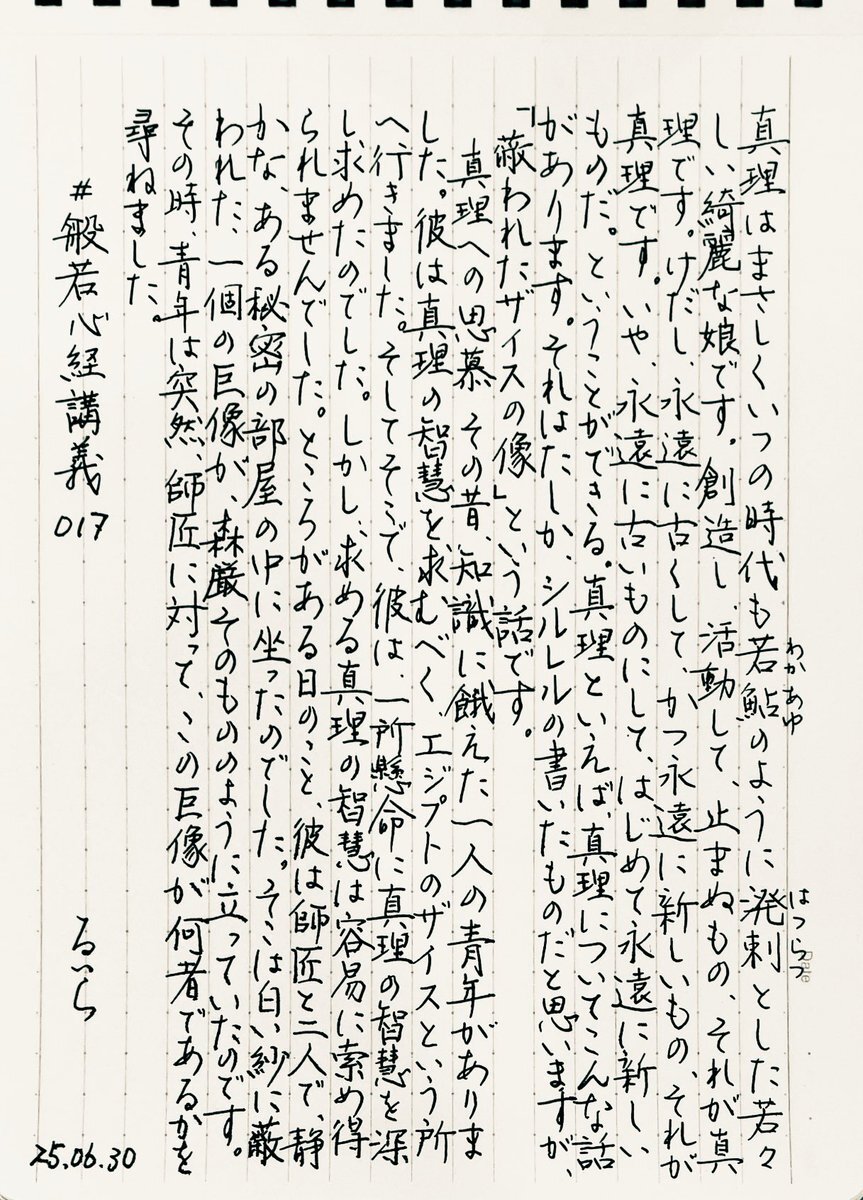 真理はまさしくいつの時代も若鮎のように溌剌とした若々
わかあゆ
はつらつ
しい綺麗な娘です。創造し、活動して、止まぬもの、それが真
理です。けだし、永遠に古くして、かつ永遠に新しいもの、それが
真理です。いや、永遠に古いものにして、はじめて永遠に新しい
ものだ。ということができる。真理といえば、真理についてこんな話
があります。それはたしか、シルレルの書いたものだと思いますが、
「蔽われたザイスの像」という話です。
真理への思慕 その昔、知識に餓えた一人の青年がありま
した。彼は真理の智慧を求むべく、エジプトのザイスという所
へ行きました。そしてそこで、彼は、一所懸命に真理の智慧を深
し、求めたのでした。しかし、求める真理の智慧は容易に索め得
られませんでした。ところがある日のこと、彼は師匠と二人で、静
かな、ある秘密の部屋の中に坐ったのでした。そこは白い紗に蔽
われた、一個の巨像が、森厳そのもののように立っていたのです。
その時、青年は突然、師匠に対って、この巨像が何者であるかを
尋ねました。
#般若心経講義 017
るいら
25.06.30
Date